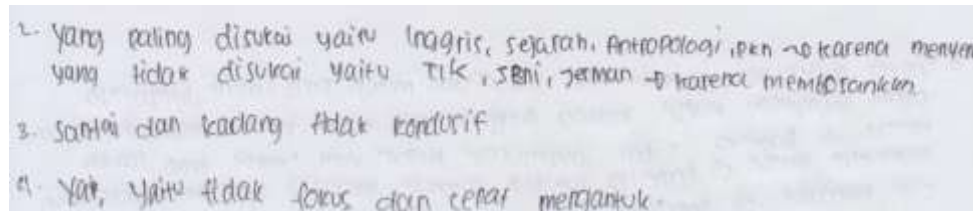 2. Yang paling disukai yaitu Inggris, sejarah, Antropologi, pkn → karena menyen
yang tidak disukai yaitu TIK, seni, Jerman → karena membosankan
3. Santai dan kadang tidak kondusif
4. Yak, yaitu tidak fokus dan cepat mengantuk.